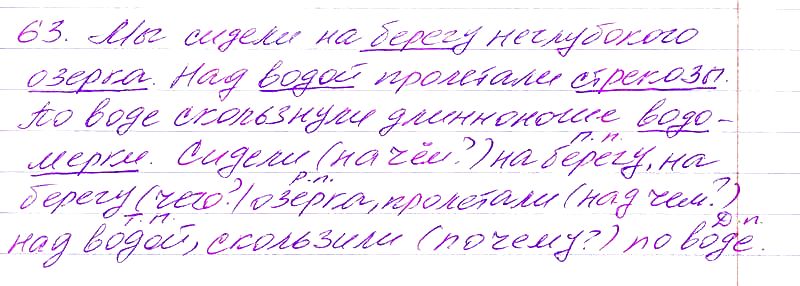 63. Мы сидели на берегу неглубокого
озерка. Над водой пролетали стрекозы.
По воде скользнули длинноногие водо-
мерки. Сидели (на чём?) на берегу, на
п. п.
берегу (чего?) озерка, пролетали (над чем?)
р. п.
над водой, скользили (по чему?) по воде.
Т. п. Д. п.